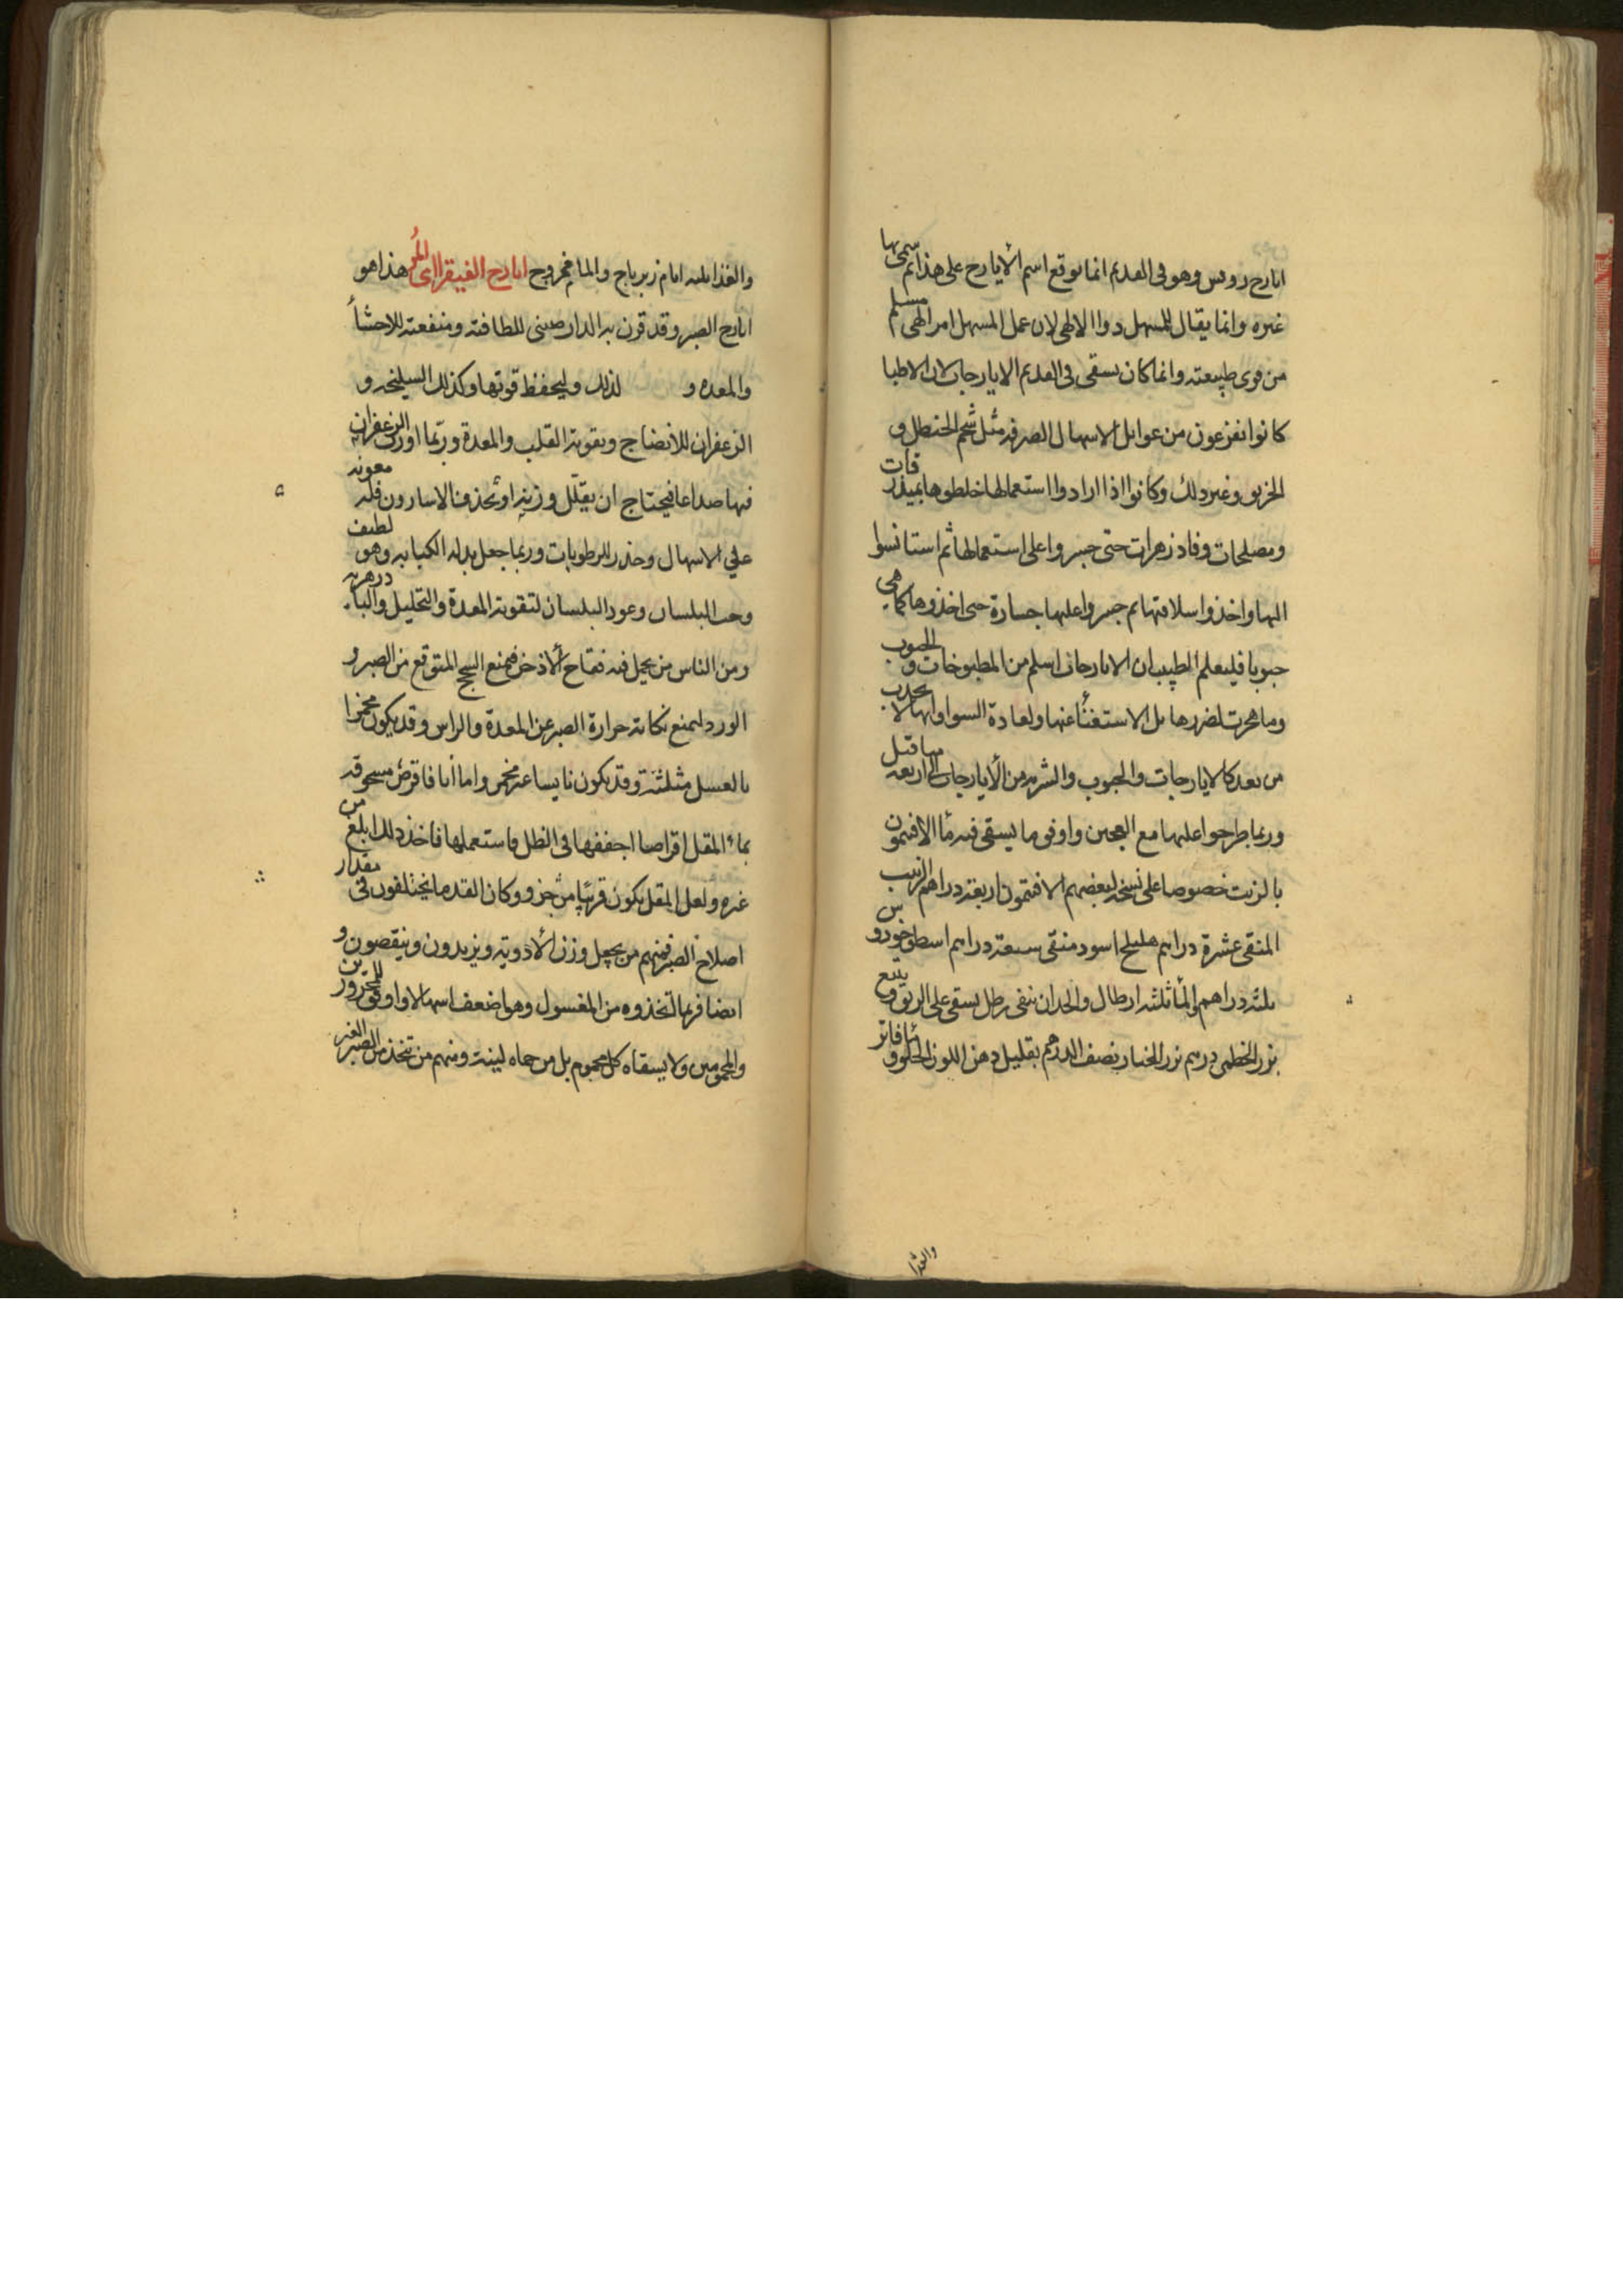 ايارج روفس وهو فى القديم انما يوقع اسم الأيارج على هذا ثم سمى بها
غيره وانما يقال للمسهل دوا الالهى لان عمل المسهل امر الهى مسلم
من قوى طبيعته وانما كان يسقى فى القديم الايارجات لان الاطبا
كانوا يفزعون من غوايل الاسهال الصرفه مثل شحم الحنظل و
الخربق وغير ذلك وكانوا اذا ارادوا استعمالها خلطوها بمبذرقات
ومصلحات وفادزهرات حتى جسروا على استعمالها ثم استانسوا
اليها واخذوا سلاقتها ثم جسروا عليها جسارة حتى اخذوها كما هى
حبوبا فليعلم الطبيب ان الايارجات اسلم من المطبوخات و الحبوب
وما هجرت لضررها بل الاستغنأ عنها ولعادة السوا وانها لا تجذب
من بعد كالايارجات والحبوب والشربه من الأيارجات الى اربعه مثاقيل
وربما طرحوا عليها مع العجين واوفق ما يسقى فيه مأ الافتمون
بالزبيب خصوصا على نسخه لبعضهم الافتمون اربعة دراهم الزبيب
المنقى عشرة دراهم هليلج اسود منقى سبعة دراهم اسطوخودوس
ثلثه دراهم والمأ ثلثه ارطال والحد ان يبقى رطل يسقى على الريق و يتبع
بزر الخطمى درهم بزر الخيار نصف الدرهم بقليل دهن اللوز الحلو و مأ فاتر
والغذا
والغذا ثلثه ايام زيرباج والما ممزوج ايارج الفيقرا اى المُر هذا هو
ايارج الصبر وقد قرن به الدارصينى للطافته ومنفعته للاحشأ
والمعده و لذلك وليحفظ قوتها وكذلك السليخه و
الزعفران للانضاج وتقوية القلب والمعدة وربما اورث الزعفران
فيها صداعا فيحتاج ان يقلل وزنه او يحذف الاسارون فله معونه
على الاسهال وحدر الرطوبات وربما جعل بدله الكبابه وهو لطيف
وحب البلسان وعود البلسان لتقوية المعدة والتحليل والبادزهريه
ومن الناس من يجعل فيه فقاح الأذخر فيمنع السحج المتوقع من الصبر و
الورد ليمنع نكاية حرارة الصبر عن المعدة والراس وقد يكون مخمرا
بالعسل مثلثة وقد يكون يابسا غير مخمر واما أنا فاقرص مسحوقه
بمأ المقل اقراصا اجففها فى الظل فاستعملها فاخذ ذلك ابلغ من
غيره ولعل المقل يكون قريبا من جزو وكان القدما يختلفون فى مقدار
اصلاح الصبر فمنهم من يجعل وزن الأدوية ويزيدون وينقصون و
ايضا فربما اتخذوه من المغسول وهو اضعف اسهالا واوفق للمحرورين
والمحمومين ولا يسقاه كل محموم بل من حماه لينة ومنهم من يتخذ من الصبر الغير